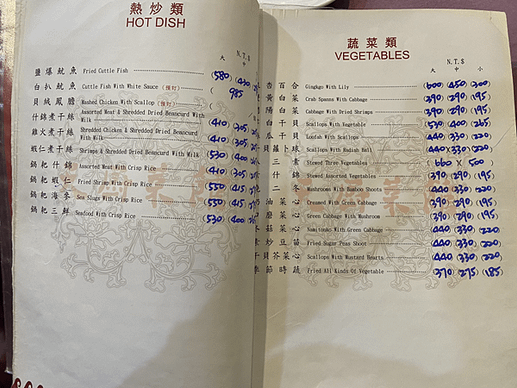 熱炒類
HOT DISH
N.T.$
大
鹽爆魷魚 Fried Cuttle Fish (580) (430
白扒魷魚 Cuttle Fish With White Sauce (預訂) ( 985
貝絨鳳膽 Mashed Chicken With Scallop (預訂)
什錦煮干絲 Assorted Meat & Shredded Dried Beancurd With Milk (410) (305
雞火煮干絲 Shredded Chicken & Shredded Dried Beancurd With Milk (410) (305
蝦仁煮干絲 Shrimps & Shredded Dried Beancurd With Milk (530) (400
鍋粑什錦 Assorted Meat With Crisp Rice (410) (305
鍋粑蝦仁 Fried Shrimp With Crisp Rice (550) (415
鍋粑海參 Sea Slugs With Crisp Rice (550) (415
鍋粑三鮮 Seafood With Crisp Rice (530) (400
蔬菜類
VEGETABLES
N.T.$
大 中 小
杏百合 Gingkgo With Lily (600) (450) (300)
黃白菜 Crab Spawns With Cabbage (390) (290) (195)
陽白菜 Cabbage With Dried Shrimps (390) (290) (195)
白干貝 Scallops With Vegetable (530) (400) (265)
瓜干貝 Loofah With Scallops (440) (330) (220)
貝蘿卜球 Scallops With Radish Ball (440) (330) (220)
三素 Stewed Three Vegetables (660 × 500)
什錦 Stewed Assorted Vegetables (390) (290) (195)
二冬 Mushrooms With Bamboo Shoots (440) (330) (220)
油菜心 Creamed With Green Cabbage (390) (290) (195)
磨菜心 Green Cabbage With Mushroom (390) (290) (195)
菇菜心 With Green Cabbage (440) (330) (220)
炒豆苗 Fried Sugar Peas Shoot (440) (330) (220)
貝芥菜心 Scallops With Mustard Hearts (440) (330) (220)
季節時蔬 Fried All Kinds Of Vegetable (370) (275) (185)